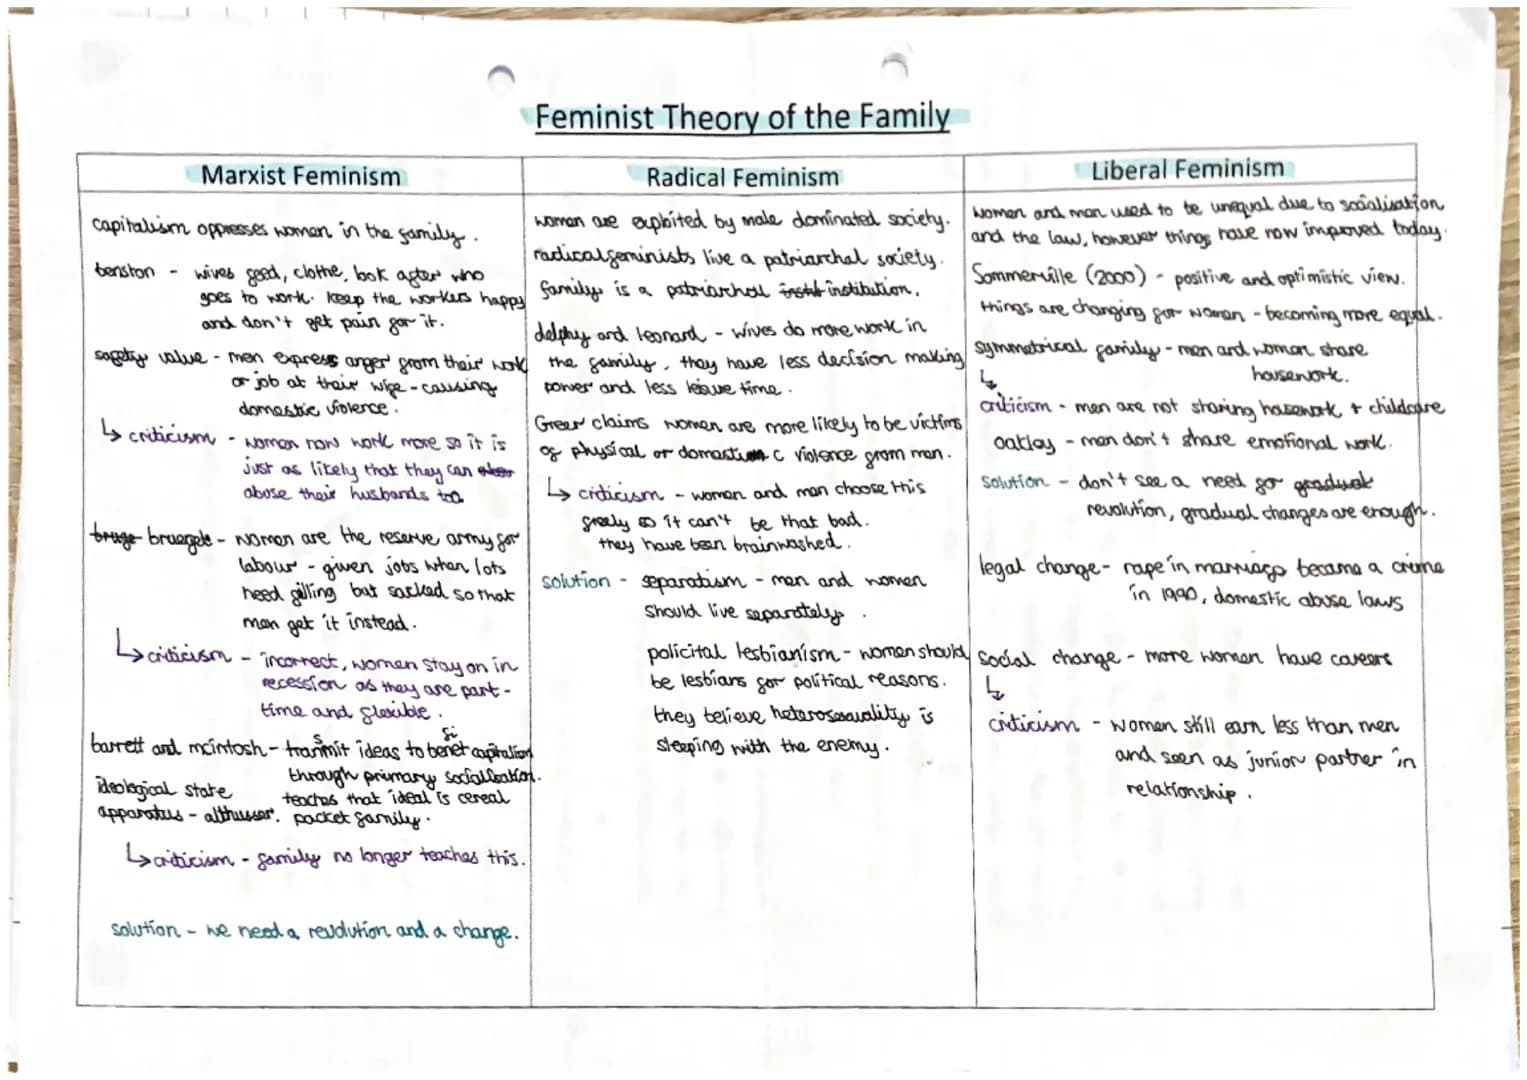 Feminist Theory of the Family
Marxist Feminism
capitalism oppresses women in the family.
benston - wives feed, clothe, look after who
goes to work. keep the workers happy
and don't get pain for it.
safety value - men express anger from their work
or job at their wife - causing
domestic violence.
↳ criticism - women now work more so it is
just as likely that they can
abuse their husbands too
bruge bruegels - women are the reserve army for
labour - given jobs when lots
need filling but sacked so that
men get it instead.
↳ criticism - incorrect, women stay on in
recession as they are part-
time and flexible.
barrett and mcintosh - transmit ideas to benefit capitalism
through primary socialisation.
teaches that ideal is cereal
packet family.
ideological state
apparatus - althusser.
↳ criticism - family no longer teaches this.
solution - we need a revolution and a change.
Radical Feminism
women are exploited by male dominated society.
radical feminists live a patriarchal society.
family is a patriarchal instit institution.
delphy and leonard - wives do more work in
the family, they have less decision making
power and less leisure time.
Greer claims women are more likely to be victims
of physical or domestic violence from men.
↳ criticism - women and men choose this
freely so it can't be that bad.
they have been brainwashed.
solution - separatism - men and women
should live separately.
policital lesbianism - women should
be lesbians for political reasons.
they believe heterosexuality is
sleeping with the enemy.
Liberal Feminism
women and men used to be unequal due to socialisation
and the law, however things have now improved today.
Sommerville (2000) - positive and optimistic view.
things are changing for women - becoming more equal.
symmetrical family - men and women share
housework.
↳
criticism - men are not sharing housework + childcare
oakley - men don't share emotional work.
solution - don't see a need for gradual
revolution, gradual changes are enough.
legal change - rape in marriage became a crime
in 1990, domestic abuse laws
social change - more women have careers
↳
criticism - women still earn less than men
and seen as junior partner in
relationship.